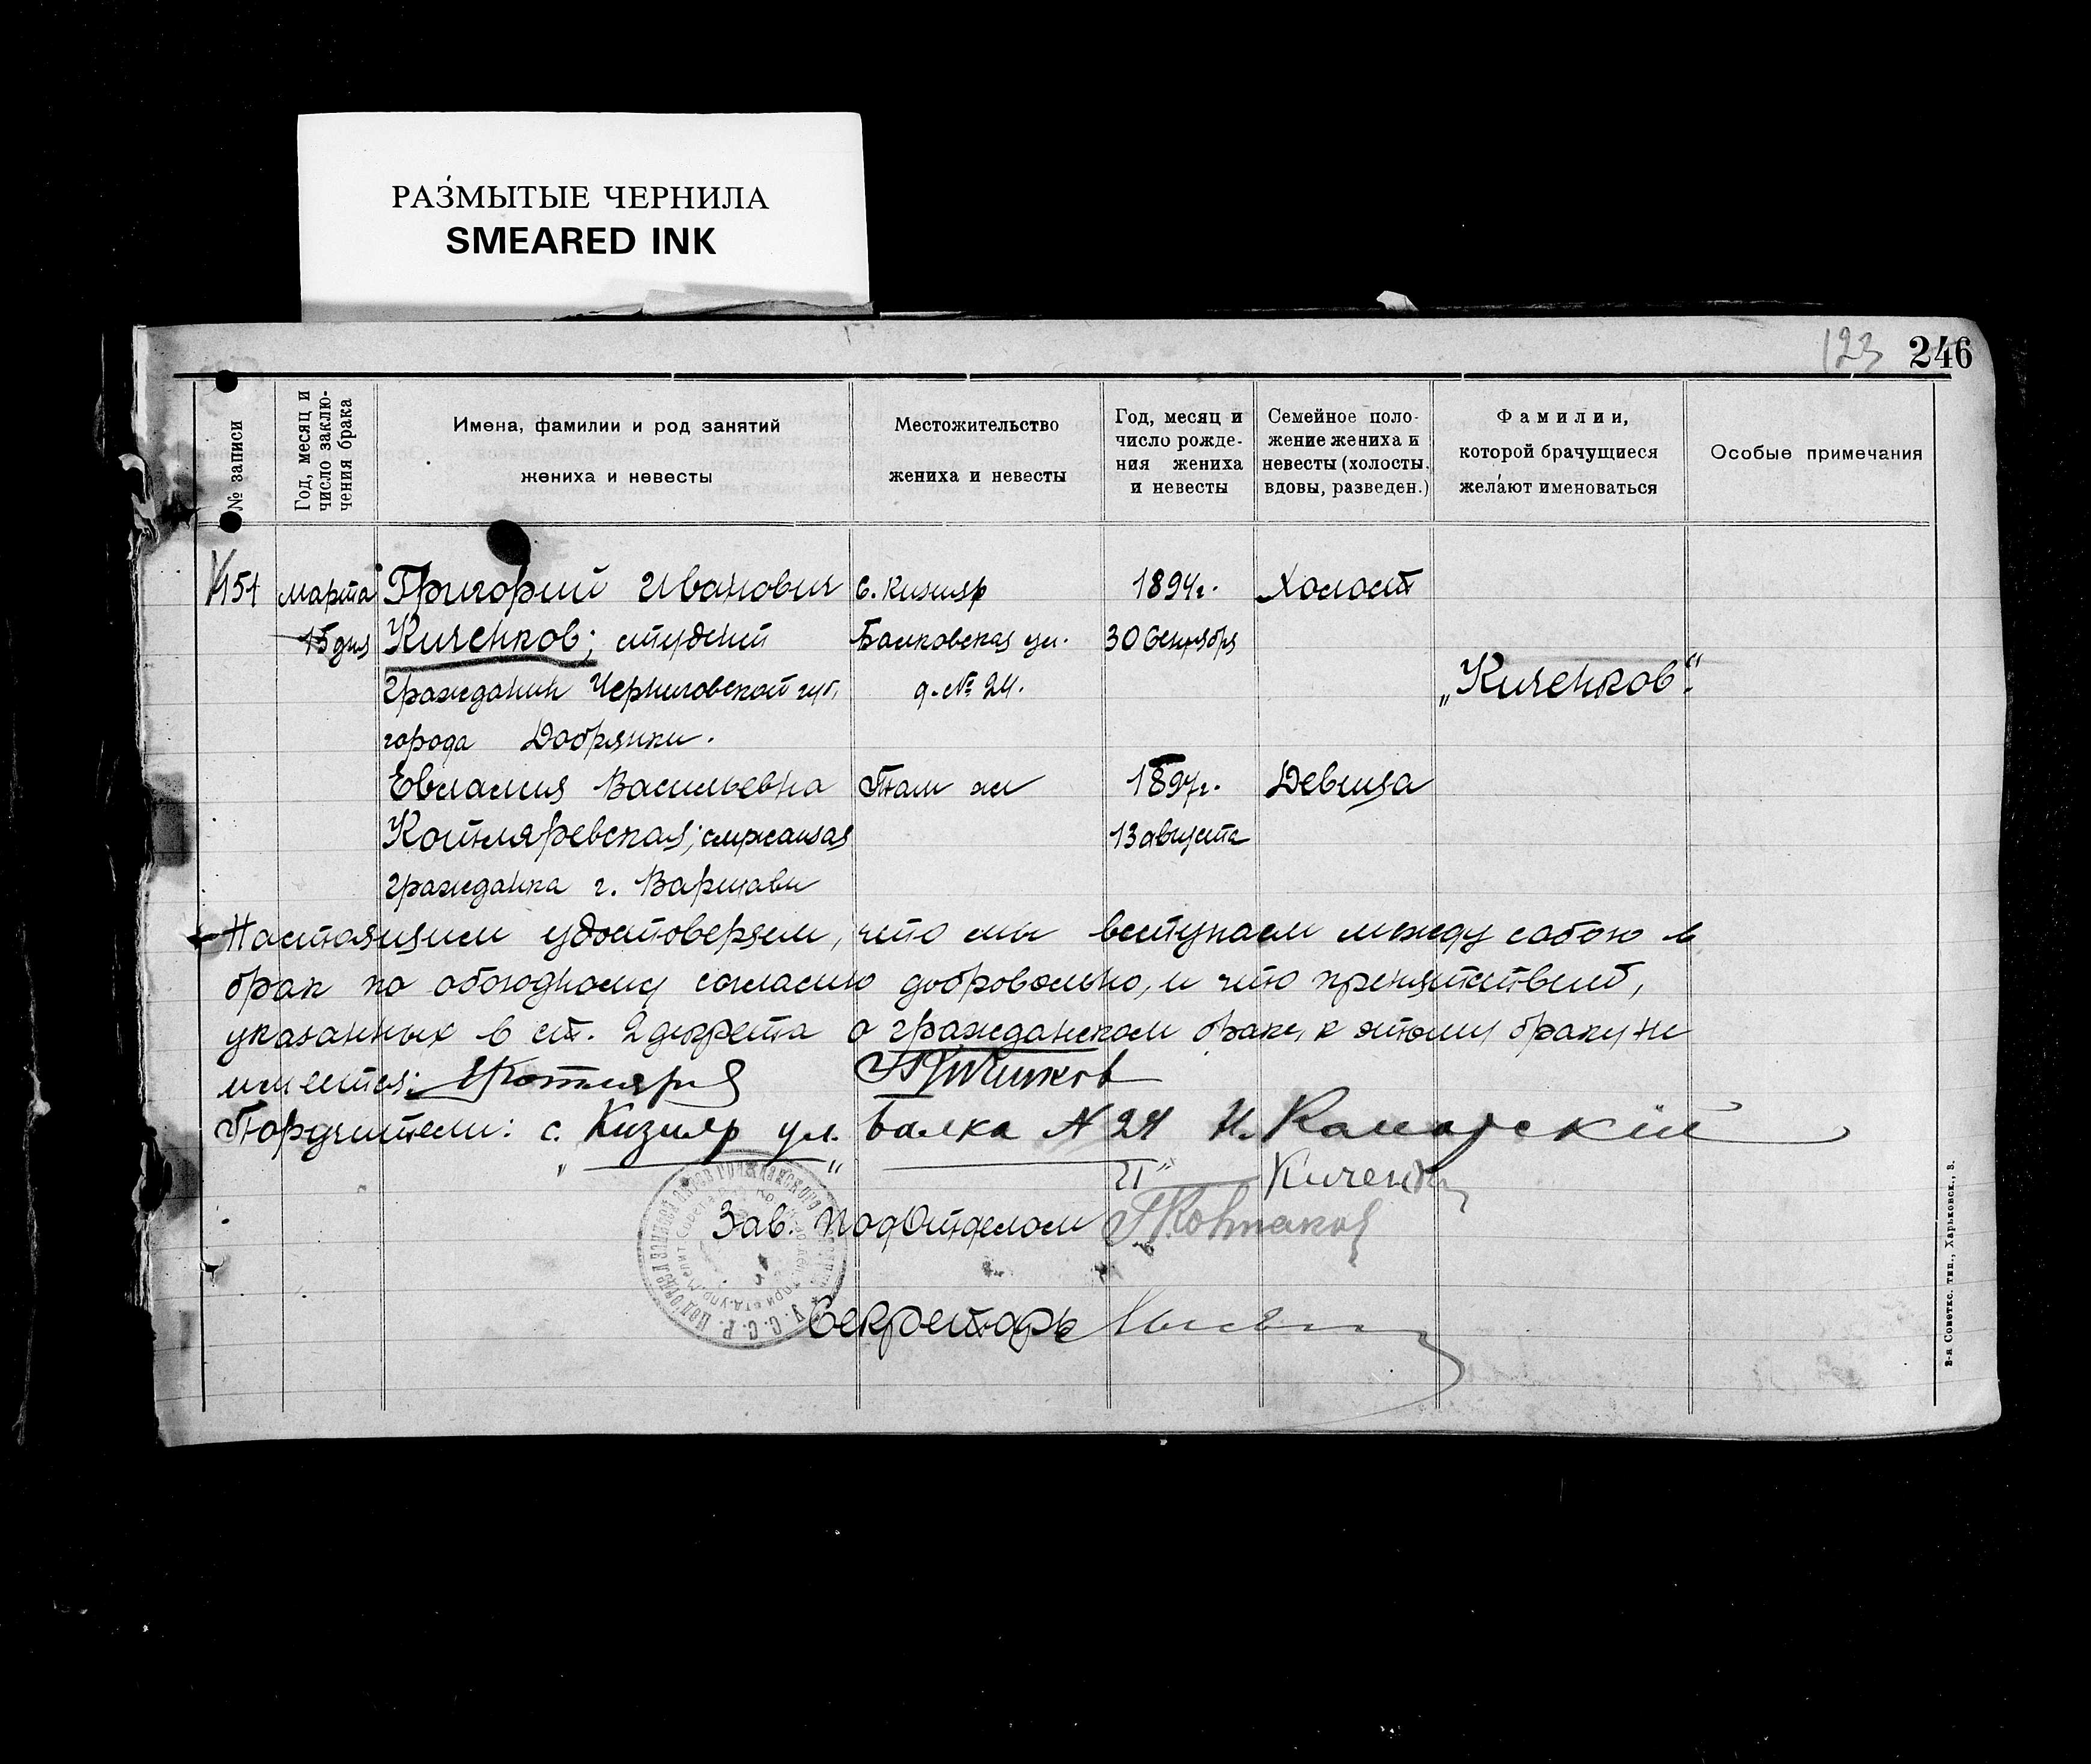 РАЗМЫТЫЕ ЧЕРНИЛА
SMEARED INK
123 246
№ записи
Год, месяц и
число заклю-
чения брака
Имена, фамилии и род занятий
жениха и невесты
Местожительство
жениха и невесты
Год, месяц и
число рожде-
ния жениха
и невесты
Семейное поло-
жение жениха и
невесты (холосты,
вдовы, разведен.)
Фамилии,
которой брачущиеся
желают именоваться
Особые примечания
151
марта
15 дня
Григорий Иванович
Киченков; студент
гражданин Черниговской губ.
города Добрянки.
с. Кизияр
Балковская ул.
д. № 24.
1894г.
30 Сентября
Холост
„Киченков".
Евлалия Васильевна
Котляревская; служащая
гражданка г. Варшави
Там же
1897г.
13 августа
Девица
Настоящим удостоверяем, что мы вступаем между собою в
брак по обоюдному согласию добровольно, и что препятствий,
указанных в ст. 2 декрета о гражданском браке, к этому браку не
имеется:
Поручители: с. Кизияр ул. Балка № 24 И.
Зав. ПодОтделом
Секретарь
2-я Советск. тип., Харьковск., 3.